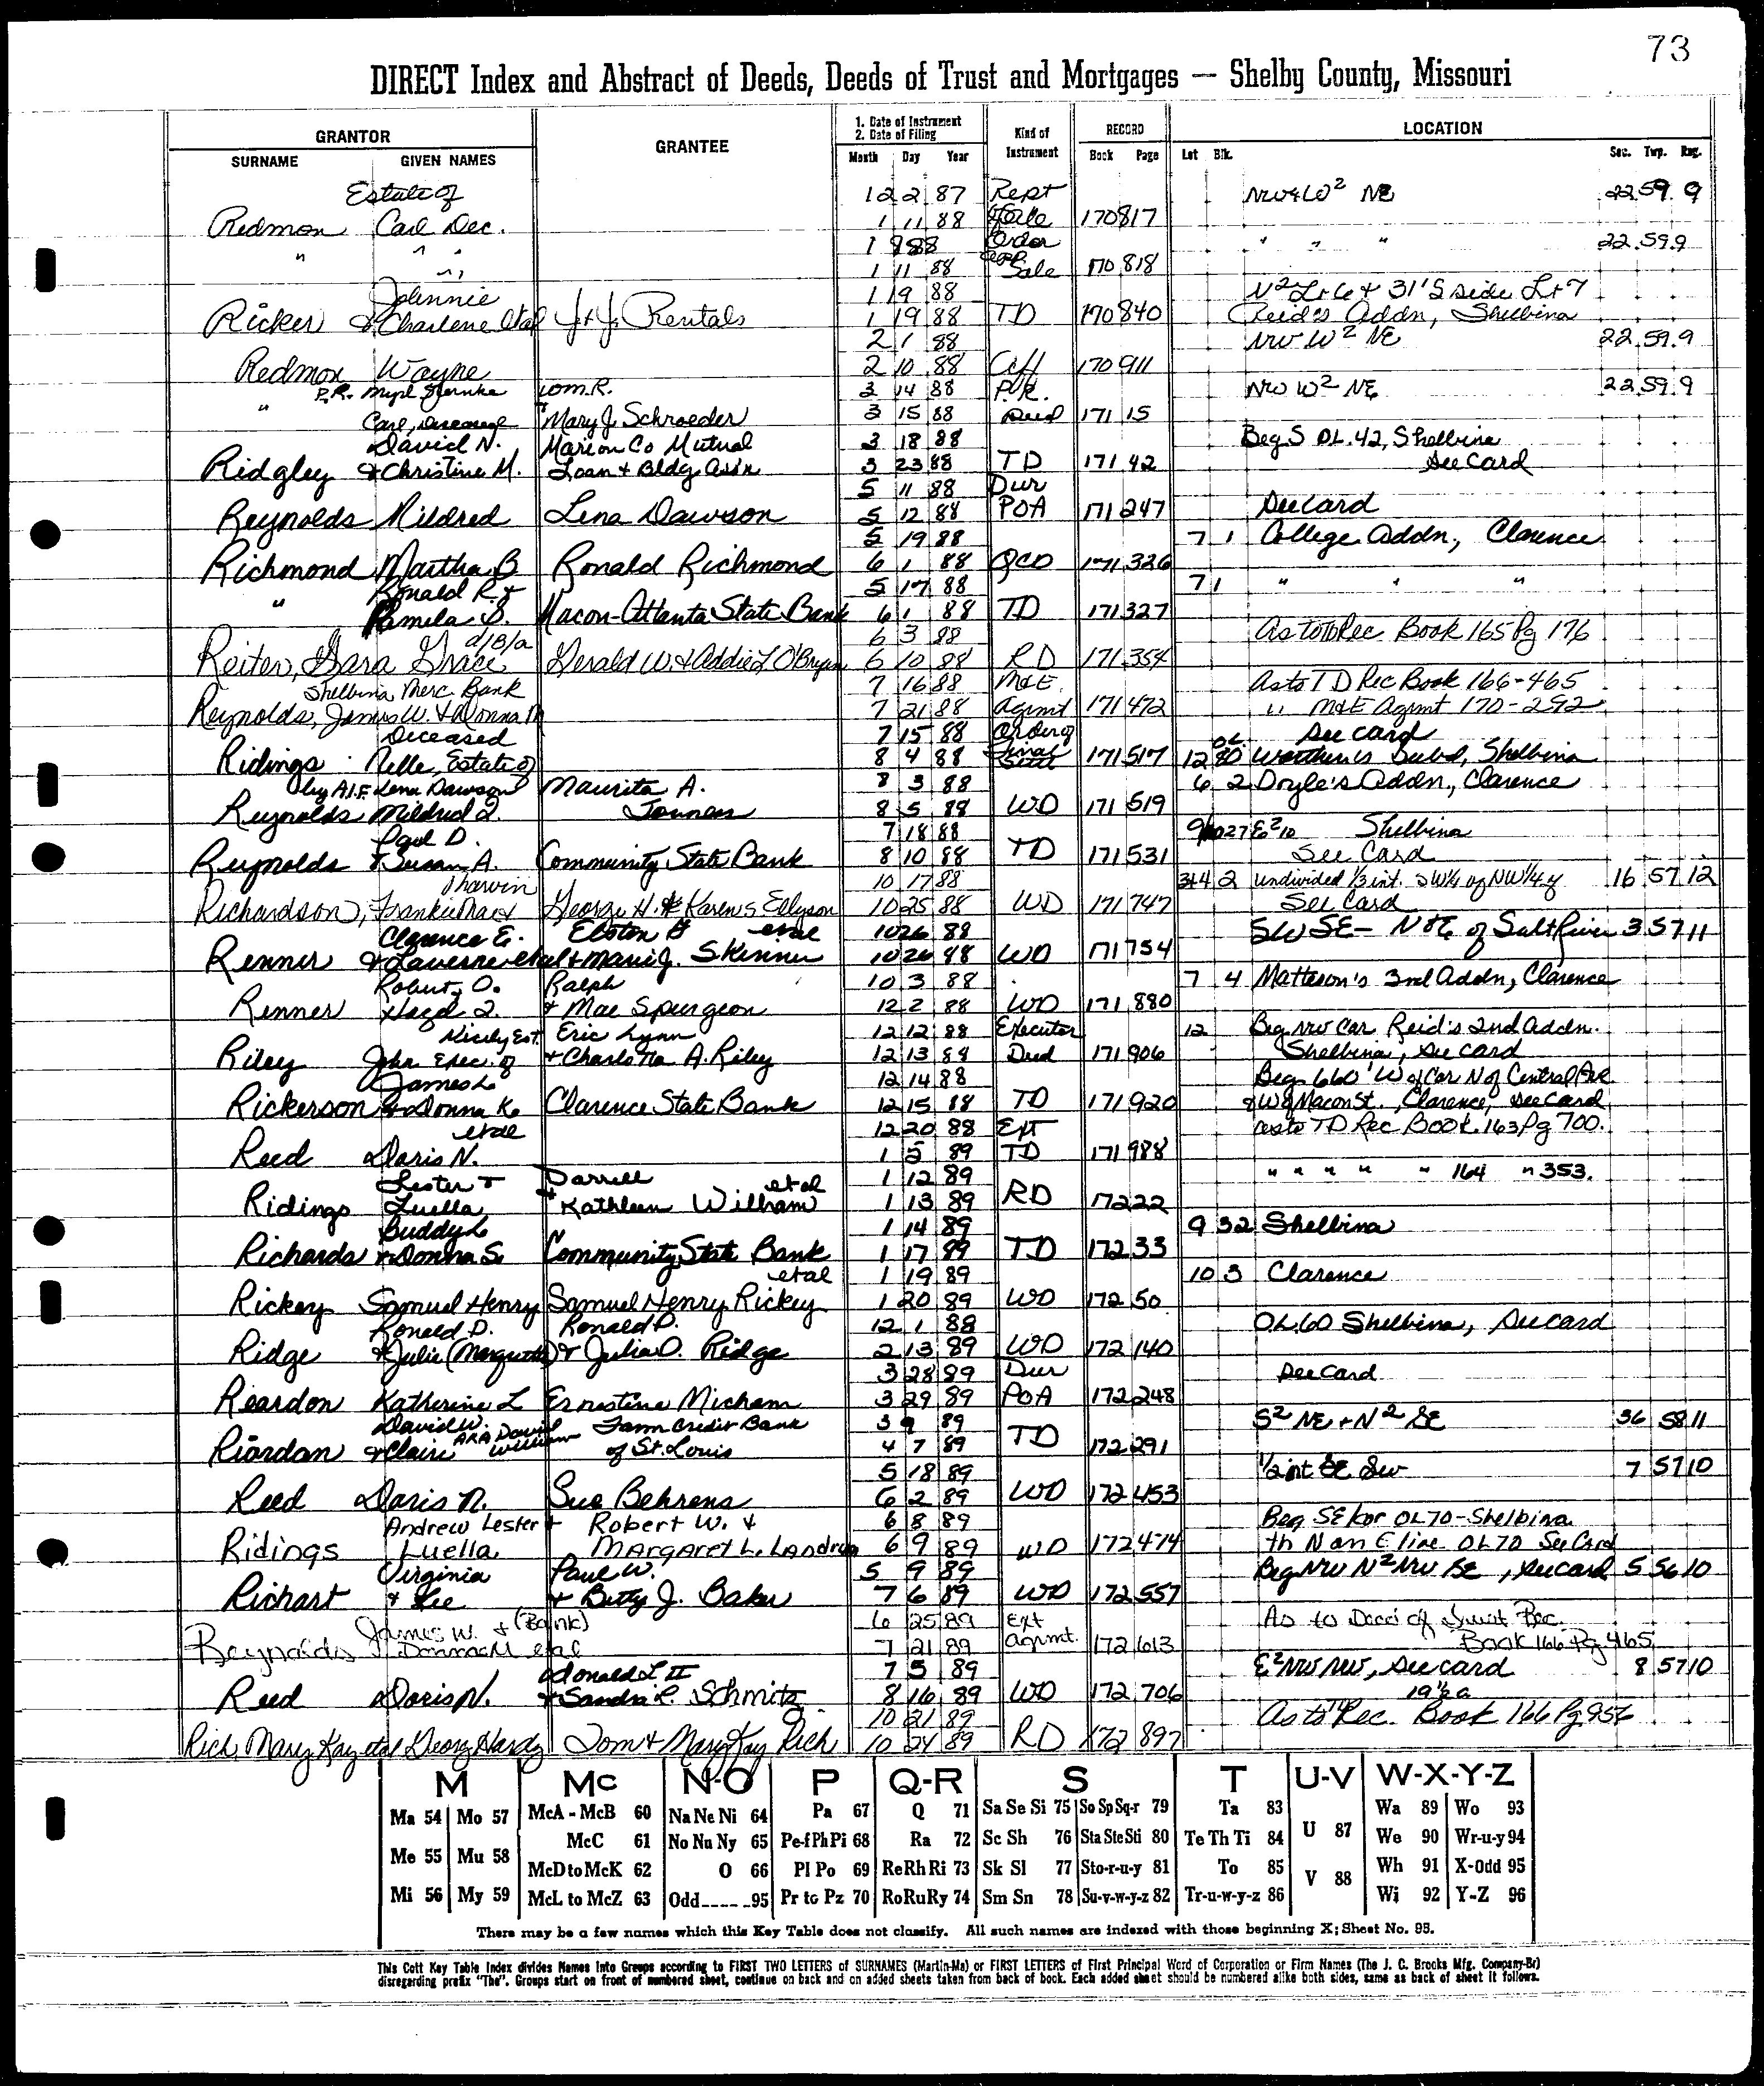 73
DIRECT Index and Abstract of Deeds, Deeds of Trust and Mortgages — Shelby County, Missouri
GRANTOR GRANTEE 1. Date of Instrument 2. Date of Filing Kind of Instrument RECORD LOCATION
SURNAME GIVEN NAMES Month Day Year Book Page Lot Blk. Sec. Twp. Rng.
Estate of 12 2 87 Rept NW & W2 NE 22 59 9
Redmon Carl Dec. 1 11 88 170 817
" " " 1 8 88 Order " " " 22 59 9
1 11 88 Sale 170 818
Johnnie 1 19 88 N2 Lt 6 + 31' S side Lt 7
Ricker & Charlene etal J & J Rentals 1 19 88 TD 170 840 Reid's Addn, Shelbina
2 1 88 NW W2 NE 22 59 9
Redmon Wayne 2 10 88 Aff 170 911
P.R. Wm. R. 3 14 88 P.R. NW W2 NE 22 59 9
" Carl, Deceased & Mary J. Schroeder 3 15 88 Deed 171 15
David N. Marion Co Mutual 3 18 88 Beg S OL. 42, Shelbina
Ridgley & Christine M. Loan & Bldg Ass'n 3 23 88 TD 171 42 See Card
5 11 88 Dur
Reynolds Mildred Lena Dawson 5 12 88 POA 171 247 See Card
5 19 88 7 1 College Addn, Clarence
Richmond Martha B Ronald Richmond 6 1 88 QCD 171 326
" Ronald R & 5 17 88 7 1 " " "
Pamela S. Macon-Atlanta State Bank 6 1 88 TD 171 327
d/b/a 6 3 88 As to TD Rec Book 165 Pg 176
Reiter, Gara Grace Gerald W & Addie L O'Bryan 6 10 88 RD 171 354
Shelbina Merc. Bank 7 16 88 M&E As to TD Rec Book 166-465
Reynolds, James W. & Donna M 7 21 88 Agmt 171 472 " M&E Agmt 170-292
Deceased 7 15 88 Order of OL See Card
Ridings Nelle, Estate of 8 4 88 Final Settl 171 517 12 80 Worthen's Subd, Shelbina
by A.I.F. Lena Dawson Maurita A. 8 3 88 6 2 Doyle's Addn., Clarence
Reynolds Mildred L. 8 5 88 WD 171 519
Paul D. 7 18 88 Shelbina
Reynolds & Susan A. Community State Bank 8 10 88 TD 171 531 See Card
Tharvin 10 17 88 3+4 2 undivided 1/3 int. SW¼ of NW¼ of 16 57 12
Richardson, Frankie Mae & George H. & Karen S Ellyson 10 25 88 WD 171 747 See Card
Clarence E. Elston G etal 10 26 88 SW SE - N & E of Salt River 3 57 11
Renner & Laverne etal & Marie J. Skinner 10 26 88 WD 171 754
Robert O. Ralph 10 3 88 7 4 Matteson's 2nd Addn, Clarence
Renner Hazel L. & Mae Spurgeon 12 2 88 WD 171 880
Nicely Est. Eric Lynn 12 12 88 Executor 12 Beg NW Cor Reid's 2nd Addn.
Riley John Exec. of & Charlotta A. Riley 12 13 88 Deed 171 906 Shelbina, See Card
James L 12 14 88 Beg 660' W of Cor N of Central Ave
Rickerson & Donna K. Clarence State Bank 12 15 88 TD 171 920 & W of Macon St., Clarence, See Card
etal 12 20 88 Ext as to TD Rec Book 163 Pg 700.
Reed Doris N. 1 5 89 TD 171 988
Lester & Darrell etal 1 12 89 " " " " " 164 " 353.
Ridings Luella & Kathleen William 1 13 89 RD 172 22
Buddy L 1 14 89 9 32 Shelbina
Richards & Donna S. Community State Bank 1 17 89 TD 172 33
etal 1 19 89 10 3 Clarence
Rickey Samuel Henry Samuel Henry Rickey 1 20 89 WD 172 50
Ronald D. Ronald D. 12 1 88 OL 60 Shelbina, See Card
Ridge & Julie (Marguette) & Julia O. Ridge 2 13 89 WD 172 140
3 28 89 Dur See Card
Reardon Katherine L Ernestine Micham 3 29 89 POA 172 248
David W. AKA David William Farm Credit Bank 3 9 89 S2 NE + N2 SE 36 58 11
Riordan & Claire of St. Louis 4 7 89 TD 172 291
5 18 89 ½ int SE SW 7 57 10
Reed Doris N. Sue Behrens 6 2 89 WD 172 453
Andrew Lester & Robert W. & 6 8 89 Beg SE kor OL 70 - Shelbina
Ridings Luella Margaret L. Landrum 6 9 89 WD 172 474 th N on E line OL 70 See Card
Virginia Paul W. 5 9 89 Beg NW N2 NW SE, See Card 5 56 10
Richart & Lee & Betty J. Baker 7 6 89 WD 172 557
James W. & (Bank) 6 25 89 Ext As to Deed of Trust Rec.
Reynolds Donna M etal 7 21 89 Agmt. 172 613 Book 166 Pg 465
Donald L II 7 5 89 E2 NW NW, See Card 8 57 10
Reed Doris N. & Sandra L. Schmitz 8 16 89 WD 172 706 19½ a
10 21 89 As to TD Rec. Book 166 Pg 956
Rich Mary Kay etal Georg Hardy Tom & Mary Kay Rich 10 24 89 RD 172 897
M Mc N-O P Q-R S T U-V W-X-Y-Z
Ma 54 Mo 57 McA - McB 60 Na Ne Ni 64 Pa 67 Q 71 Sa Se Si 75 So Sp Sq-r 79 Ta 83 U 87 Wa 89 Wo 93
Me 55 Mu 58 McC 61 No Nu Ny 65 Pe-f Ph Pi 68 Ra 72 Sc Sh 76 Sta Ste Sti 80 Te Th Ti 84 We 90 Wr-u-y 94
McD to McK 62 O 66 Pl Po 69 Re Rh Ri 73 Sk Sl 77 Sto-r-u-y 81 To 85 V 88 Wh 91 X-Odd 95
Mi 56 My 59 McL to McZ 63 Odd 95 Pr to Pz 70 Ro Ru Ry 74 Sm Sn 78 Su-v-w-y-z 82 Tr-u-w-y-z 86 Wi 92 Y-Z 96
There may be a few names which this Key Table does not classify. All such names are indexed with those beginning X; Sheet No. 95.
This Cott Key Table Index divides Names Into Groups according to FIRST TWO LETTERS of SURNAMES (Martin-Ma) or FIRST LETTERS of First Principal Word of Corporation or Firm Names (The J. C. Brooks Mfg. Company-Br)
disregarding prefix "The". Groups start on front of numbered sheet, continue on back and on added sheets taken from back of book. Each added sheet should be numbered alike both sides, same as back of sheet it follows.